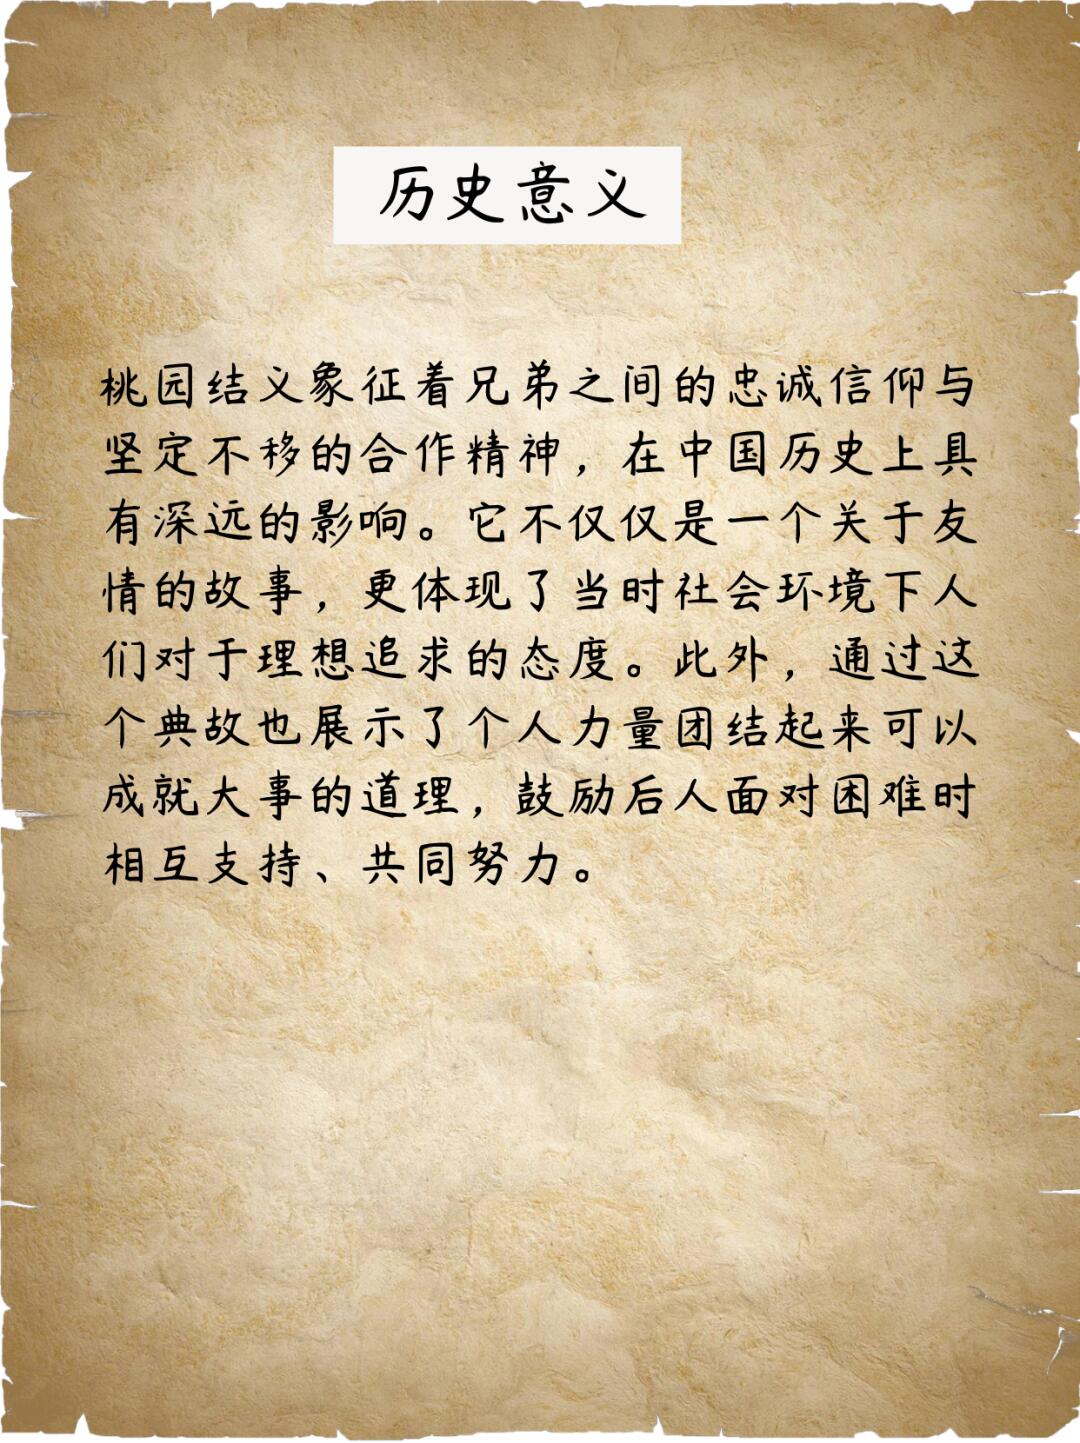 历史意义
桃园结义象征着兄弟之间的忠诚信仰与
坚定不移的合作精神，在中国历史上具
有深远的影响。它不仅仅是一个关于友
情的故事，更体现了当时社会环境下人
们对于理想追求的态度。此外，通过这
个典故也展示了个人力量团结起来可以
成就大事的道理，鼓励后人面对困难时
相互支持、共同努力。